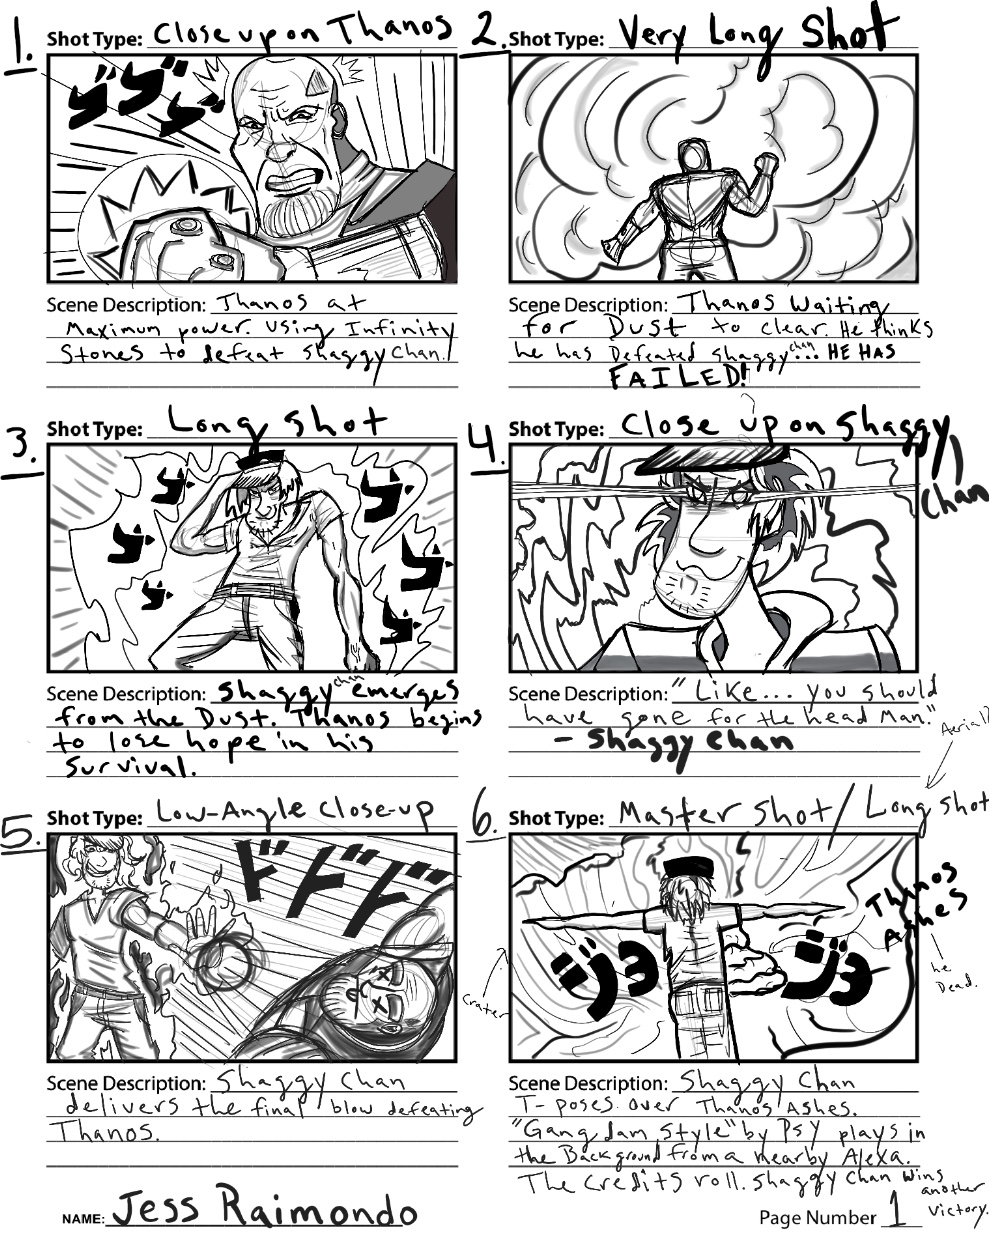 1.
Shot Type: Close up on Thanos
ゴゴゴ
Scene Description: Thanos at
Maximum power. Using Infinity
Stones to defeat Shaggy Chan.
2.
Shot Type: Very Long Shot
Scene Description: Thanos Waiting
for Dust to clear. He thinks
he has Defeated Shaggy chan... HE HAS
FAILED!
3.
Shot Type: Long Shot
Scene Description: Shaggy chan emerges
from the Dust. Thanos begins
to lose hope in his
Survival.
4.
Shot Type: Close up on Shaggy
Chan
Scene Description: "Like... you should
have gone for the head Man."
- Shaggy Chan
5.
Shot Type: Low-Angle Close-up
ドドド
Scene Description: Shaggy Chan
delivers the final blow defeating
Thanos.
Aerial?
6.
Shot Type: Master Shot / Long Shot
Thanos
Ashes
he
Dead.
ジョ ジョ
Crater
Scene Description: Shaggy Chan
T-poses over Thanos' Ashes.
"Gangdam Style" by PSY plays in
the Background from a nearby Alexa.
The credits roll. Shaggy Chan wins
another
victory.
NAME: Jess Raimondo
Page Number 1